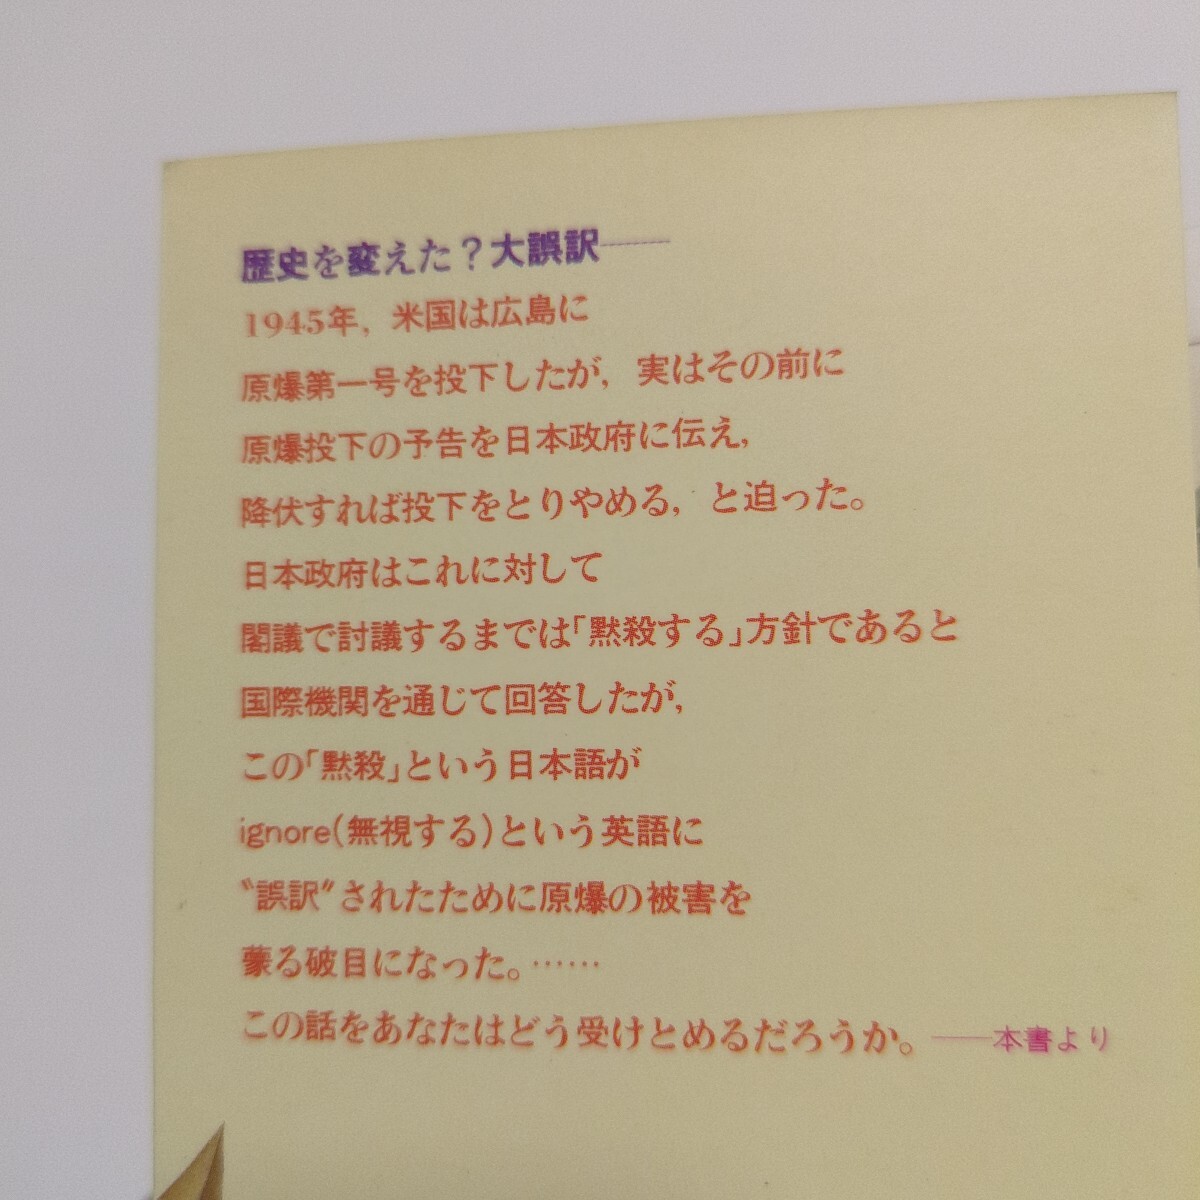 歴史を変えた？大誤訳――
1945年，米国は広島に
原爆第一号を投下したが，実はその前に
原爆投下の予告を日本政府に伝え，
降伏すれば投下をとりやめる，と迫った。
日本政府はこれに対して
閣議で討議するまでは「黙殺する」方針であると
国際機関を通じて回答したが，
この「黙殺」という日本語が
ignore(無視する)という英語に
〝誤訳〟されたために原爆の被害を
蒙る破目になった。……
この話をあなたはどう受けとめるだろうか。――本書より